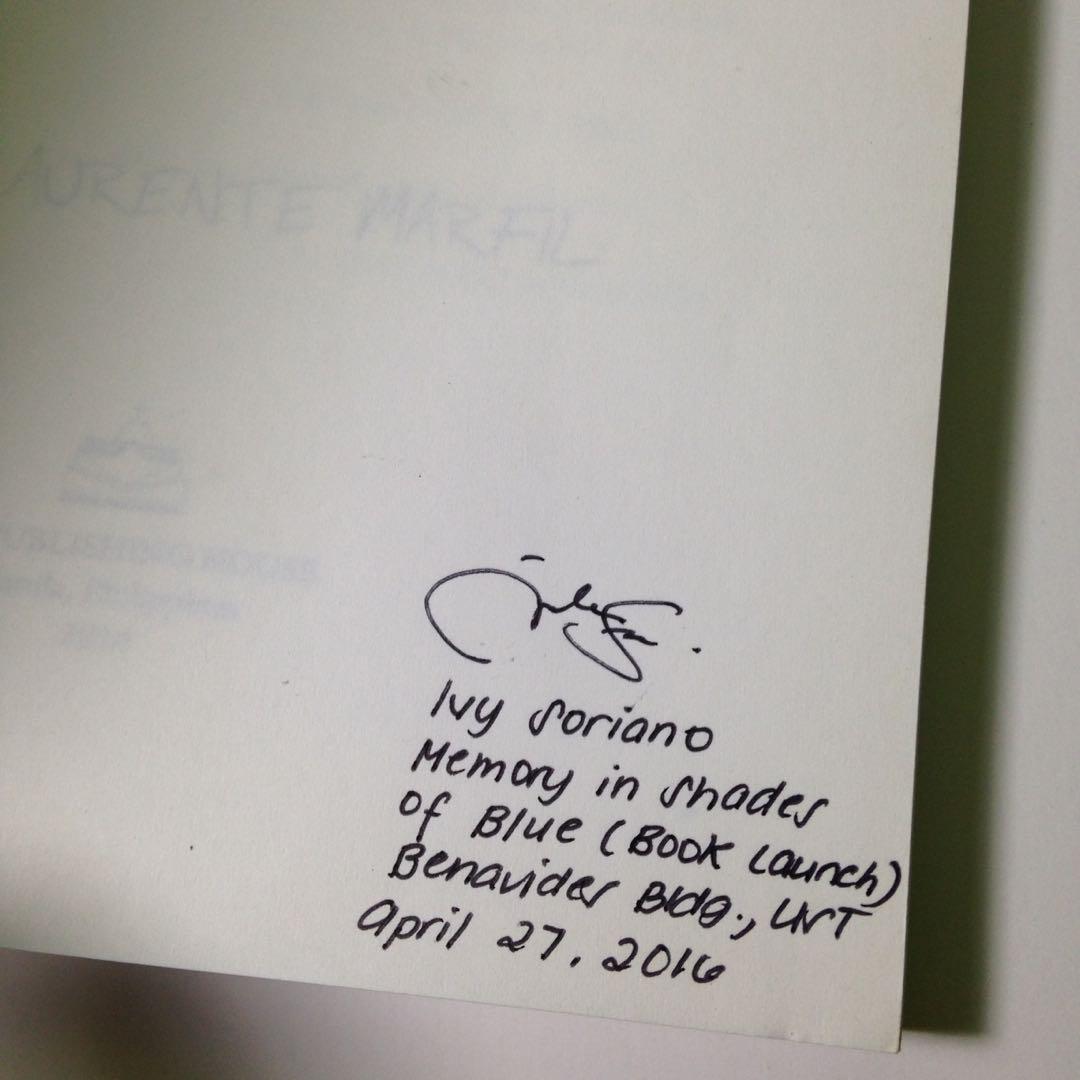 AURENTE MARFIL
PUBLISHING HOUSE
Manila, Philippines
Ivy Soriano
Memory in Shades
of Blue (Book Launch)
Benavides Bldg., UST
April 27, 2016